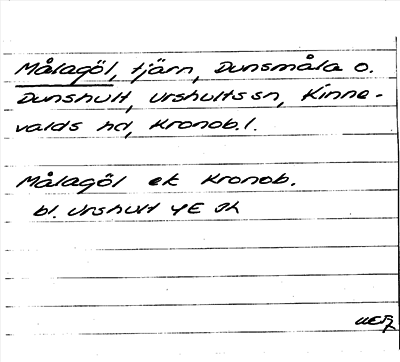 Målagöl, tjärn, Dunsmåla o.
Dunshult, Urshults sn, Kinne-
valds hd, Kronob. l.
Målagöl ek Kronob.
bl. Urshult 4E Sh